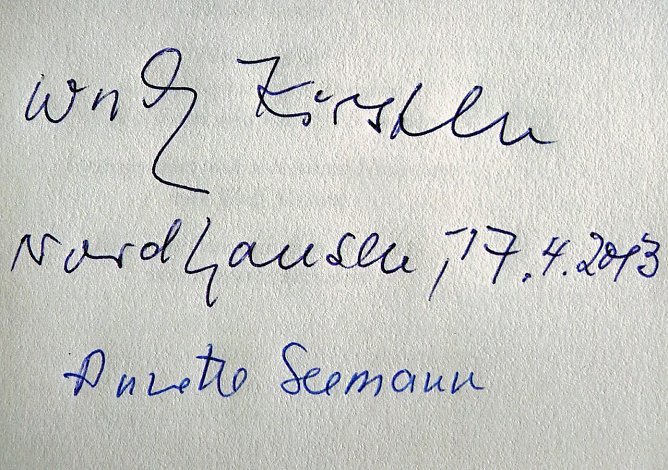 Wulf Kirsten
Nordhausen, 17.4.2013
Annette Seemann